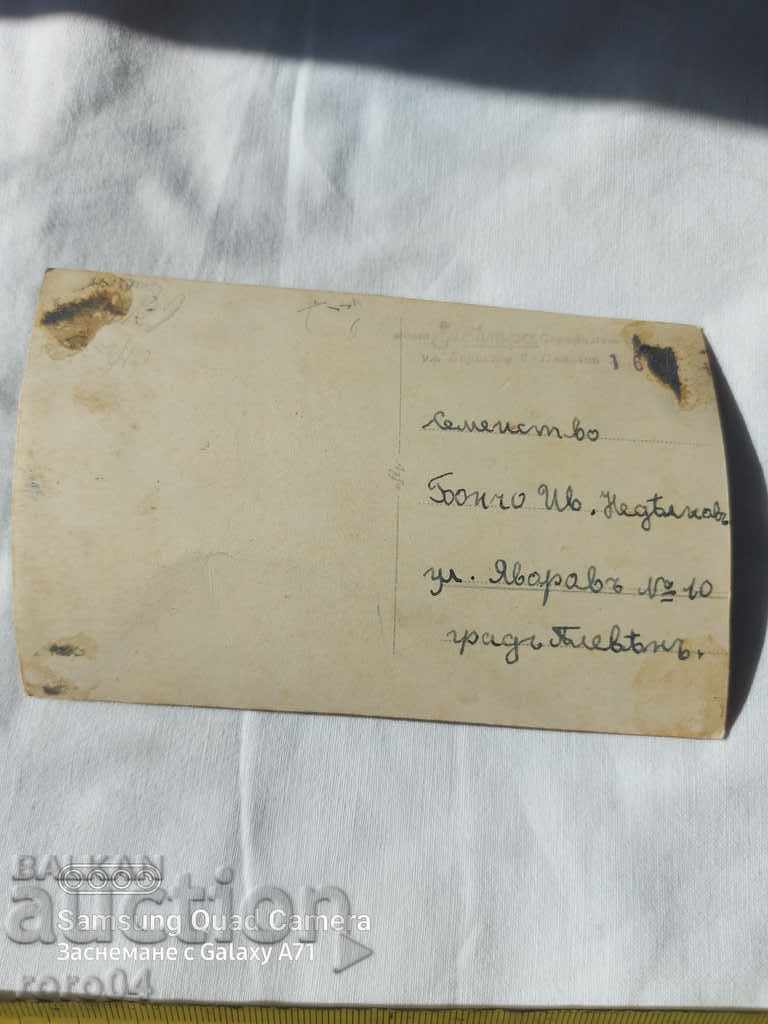 1 6
Семейство
Бончо Ив. Недѣлковъ
ул. Яворовъ № 10
градъ Плевѣнъ.
BALKAN
auction
Samsung Quad Camera
Заснемане с Galaxy A71
roro04